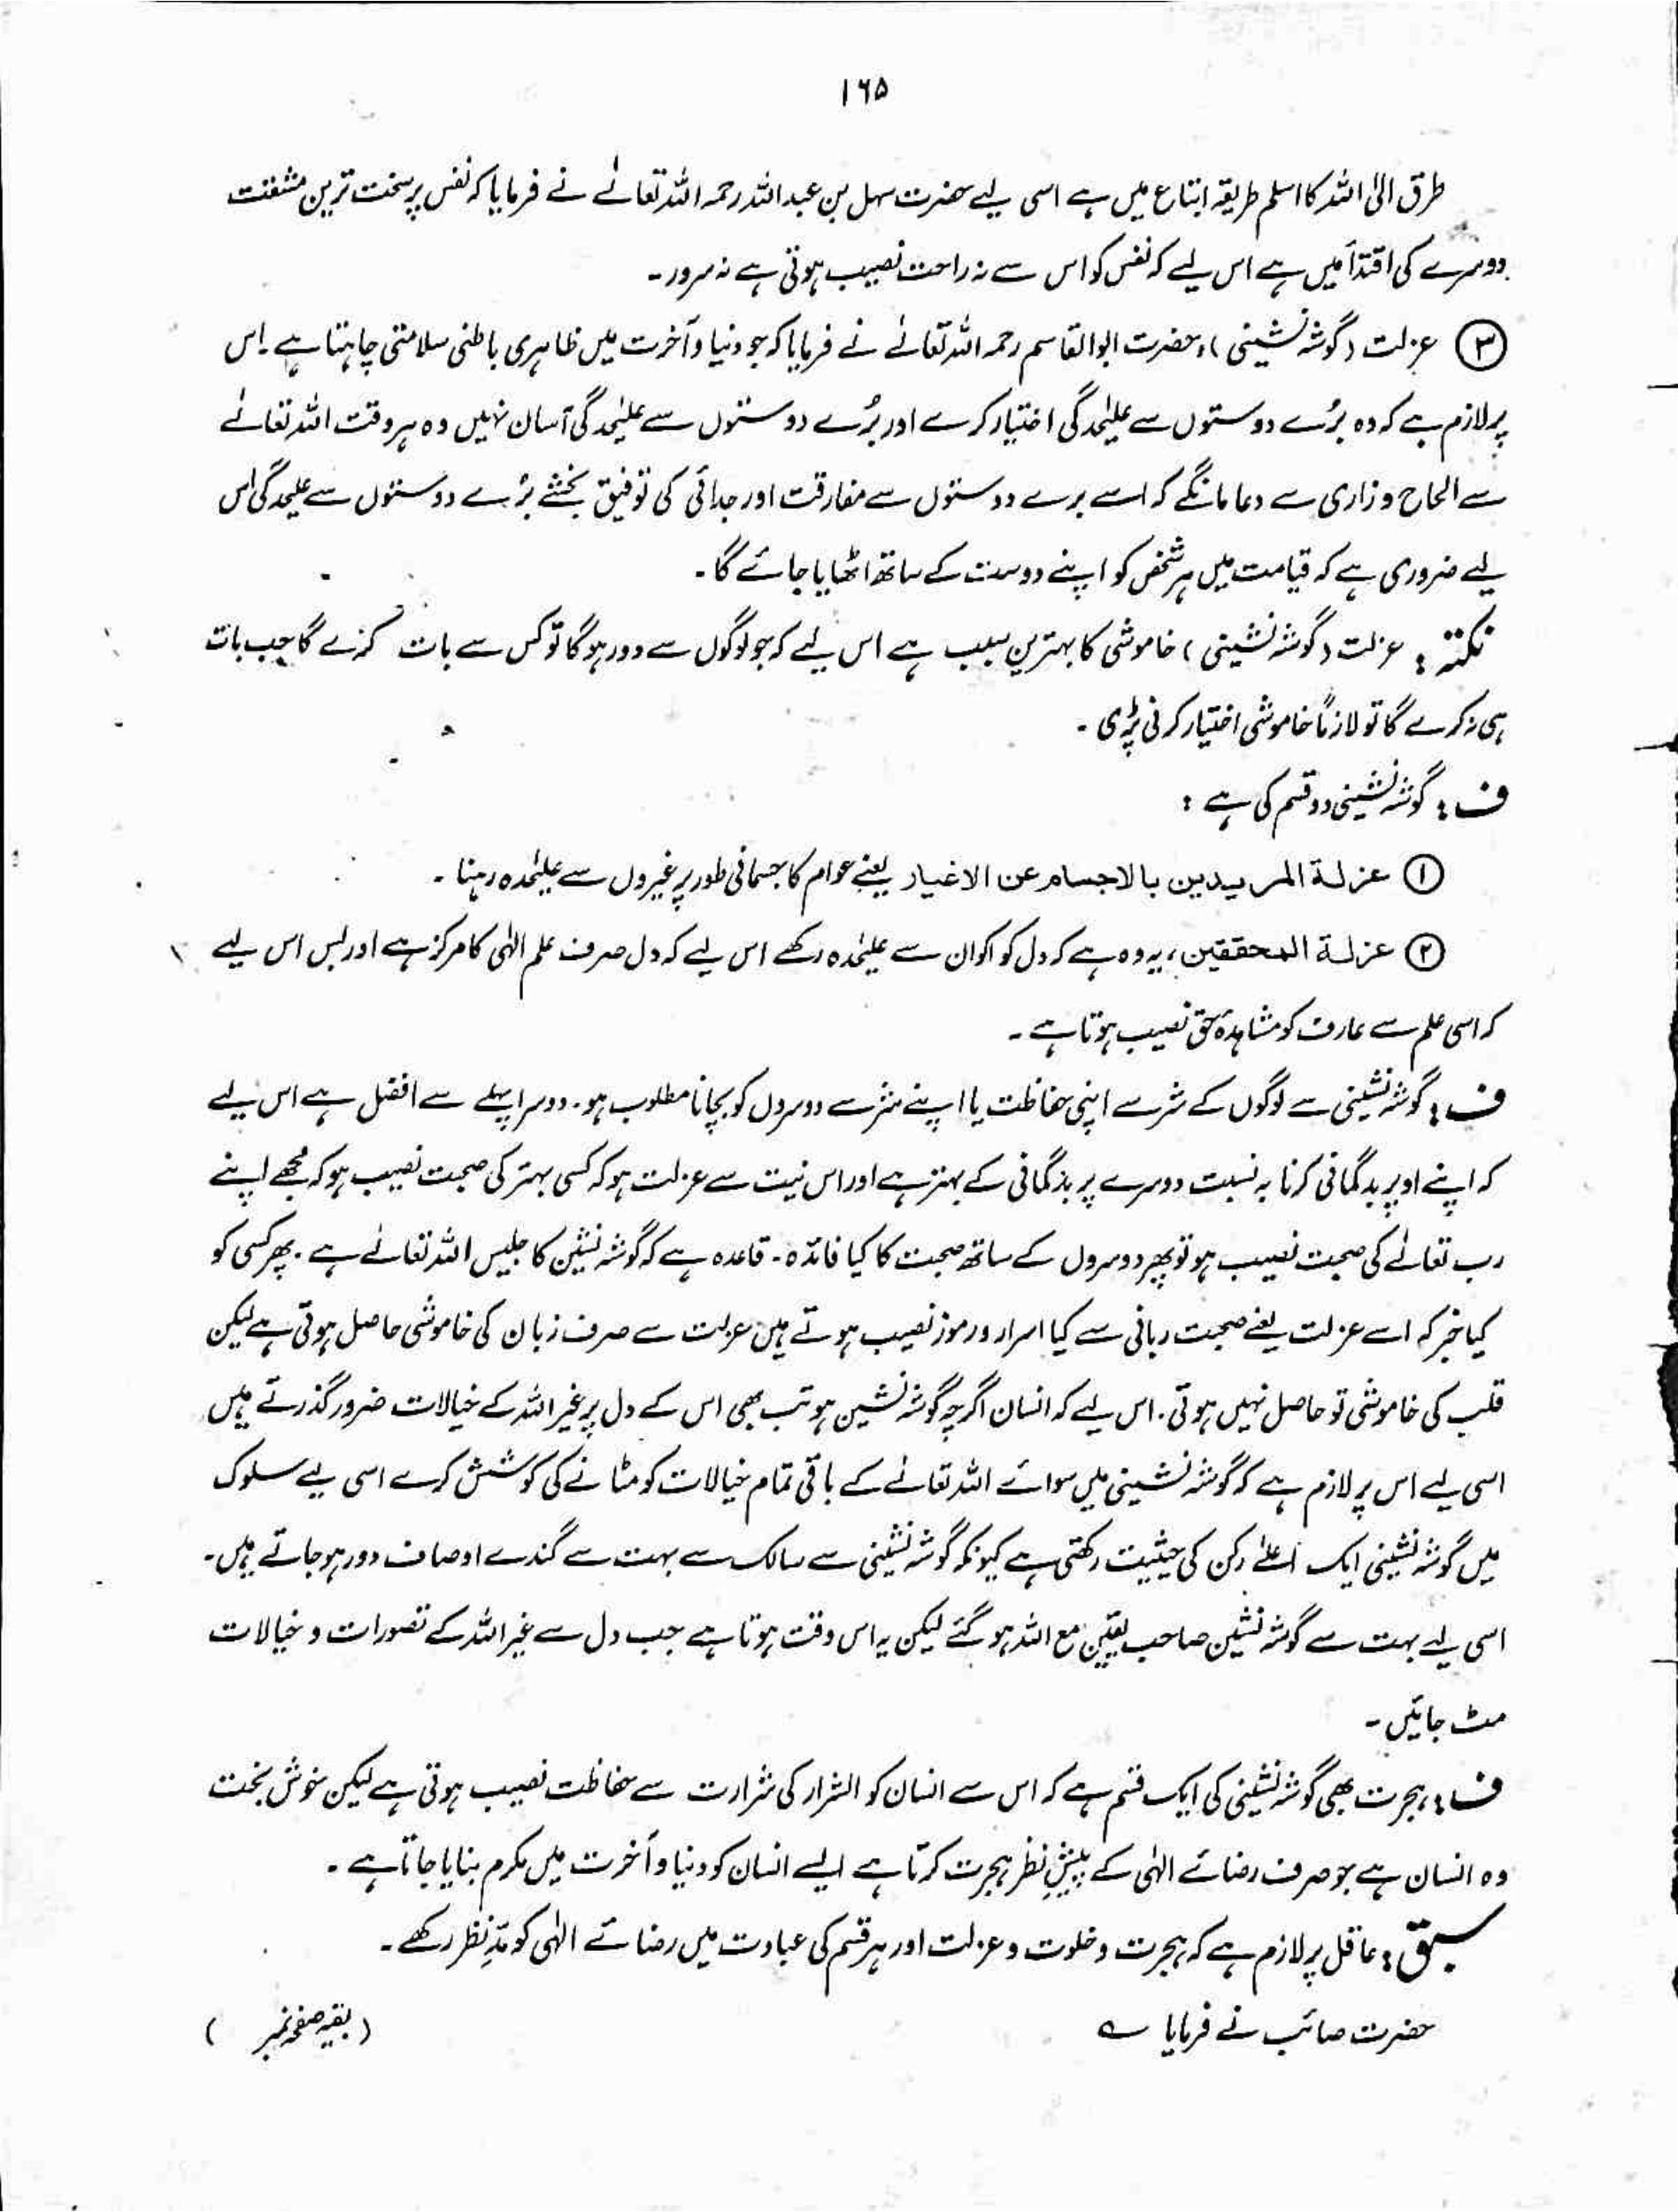 ۱۶۵
طرق الیٰ اللہ کا اسلم طریقہ اتباع میں ہے اسی لیے حضرت سہل بن عبداللہ رحمہ اللہ تعالےٰ نے فرمایا کہ نفس پر سخت ترین مشقت
دوسرے کی اقتدأ میں ہے اس لیے کہ نفس کو اس سے نہ راحت نصیب ہوتی ہے نہ سرور۔
③ عزلت (گوشہ نشینی)، حضرت ابوالقاسم رحمہ اللہ تعالےٰ نے فرمایا کہ جو دنیا و آخرت میں ظاہری باطنی سلامتی چاہتا ہے۔ اس
پر لازم ہے کہ وہ بُرے دوستوں سے علیٰحدگی اختیار کرے اور بُرے دوستوں سے علیٰحدگی آسان نہیں وہ ہر وقت اللہ تعالےٰ
سے الحاح و زاری سے دعا مانگے کہ اسے برے دوستوں سے مفارقت اور جدائی کی توفیق بخشے بُرے دوستوں سے علیحدگی اس
لیے ضروری ہے کہ قیامت میں ہر شخص کو اپنے دوست کے ساتھ اٹھایا جائے گا۔
نکتہ: عزلت (گوشہ نشینی) خاموشی کا بہترین سبب ہے اس لیے کہ جو لوگوں سے دور ہوگا تو کس سے بات کرے گا جب بات
ہی نہ کرے گا تو لازماً خاموشی اختیار کرنی پڑی۔
ف: گوشہ نشینی دو قسم کی ہے:
① عزلة المریدین بالاجسام عن الاغیار یعنے عوام کا جسمانی طور پر غیروں سے علیٰحدہ رہنا۔
② عزلة المحققین، یہ وہ ہے کہ دل کو اکوان سے علیٰحدہ رکھے اس لیے کہ دل صرف علم الٰہی کا مرکز ہے اور بس اس لیے
کہ اسی علم سے عارف کو مشاہدۂ حق نصیب ہوتا ہے۔
ف: گوشہ نشینی سے لوگوں کے شر سے اپنی حفاظت یا اپنے شر سے دوسروں کو بچانا مطلوب ہو۔ دوسرا پہلے سے افضل ہے اس لیے
کہ اپنے اوپر بدگمانی کرنا بہ نسبت دوسرے پر بدگمانی کے بہتر ہے اور اس نیت سے عزلت ہو کہ کسی بہتر کی صحبت نصیب ہو کہ مجھے اپنے
رب تعالےٰ کی صحبت نصیب ہو تو پھر دوسروں کے ساتھ صحبت کا کیا فائدہ۔ قاعدہ ہے کہ گوشہ نشین کا جلیس اللہ تعالےٰ ہے۔ پھر کسی کو
کیا خبر کہ اسے عزلت یعنے صحبت ربانی سے کیا اسرار و رموز نصیب ہوتے ہیں عزلت سے صرف زبان کی خاموشی حاصل ہوتی ہے لیکن
قلب کی خاموشی تو حاصل نہیں ہوتی۔ اس لیے کہ انسان اگرچہ گوشہ نشین ہو تب بھی اس کے دل پر غیر اللہ کے خیالات ضرور گذرتے ہیں
اسی لیے اس پر لازم ہے کہ گوشہ نشینی میں سوائے اللہ تعالےٰ کے باقی تمام خیالات کو مٹانے کی کوشش کرے اسی لیے سلوک
میں گوشہ نشینی ایک اعلےٰ رکن کی حیثیت رکھتی ہے کیونکہ گوشہ نشینی سے سالک سے بہت سے گندے اوصاف دور ہو جاتے ہیں۔
اسی لیے بہت سے گوشہ نشین صاحب یقین مع اللہ ہو گئے لیکن یہ اس وقت ہوتا ہے جب دل سے غیر اللہ کے تصورات و خیالات
مٹ جائیں۔
ف: ہجرت بھی گوشہ نشینی کی ایک قسم ہے کہ اس سے انسان کو اشرار کی شرارت سے حفاظت نصیب ہوتی ہے لیکن خوش بخت
وہ انسان ہے جو صرف رضائے الٰہی کے پیشِ نظر ہجرت کرتا ہے ایسے انسان کو دنیا و آخرت میں مکرم بنایا جاتا ہے۔
سبق: عاقل پر لازم ہے کہ ہجرت و خلوت و عزلت اور ہر قسم کی عبادت میں رضائے الٰہی کو مدِّنظر رکھے۔
حضرت صائب نے فرمایا ؎ (بقیہ صفحہ نمبر )